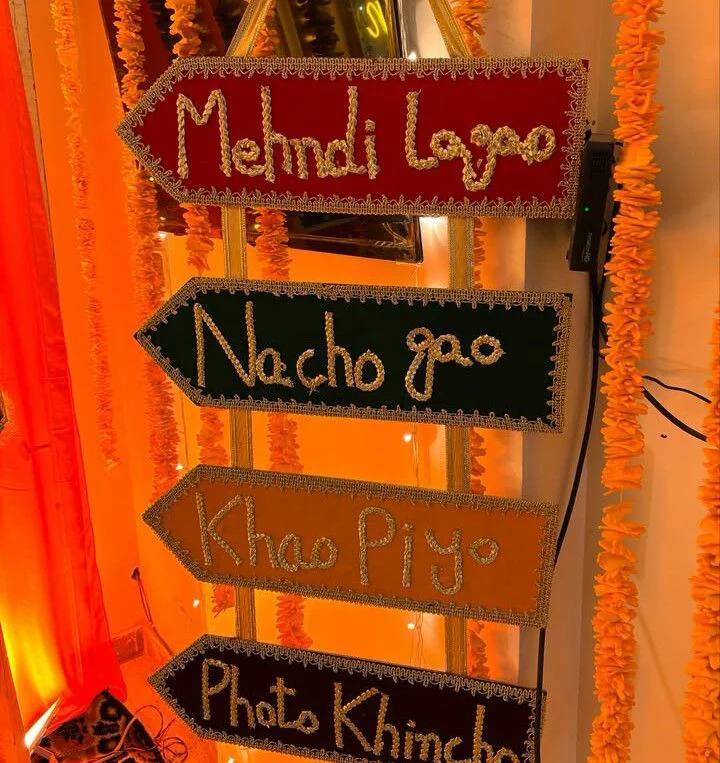 Mehndi Lagao
Nacho gao
Khao Piyo
Photo Khincho